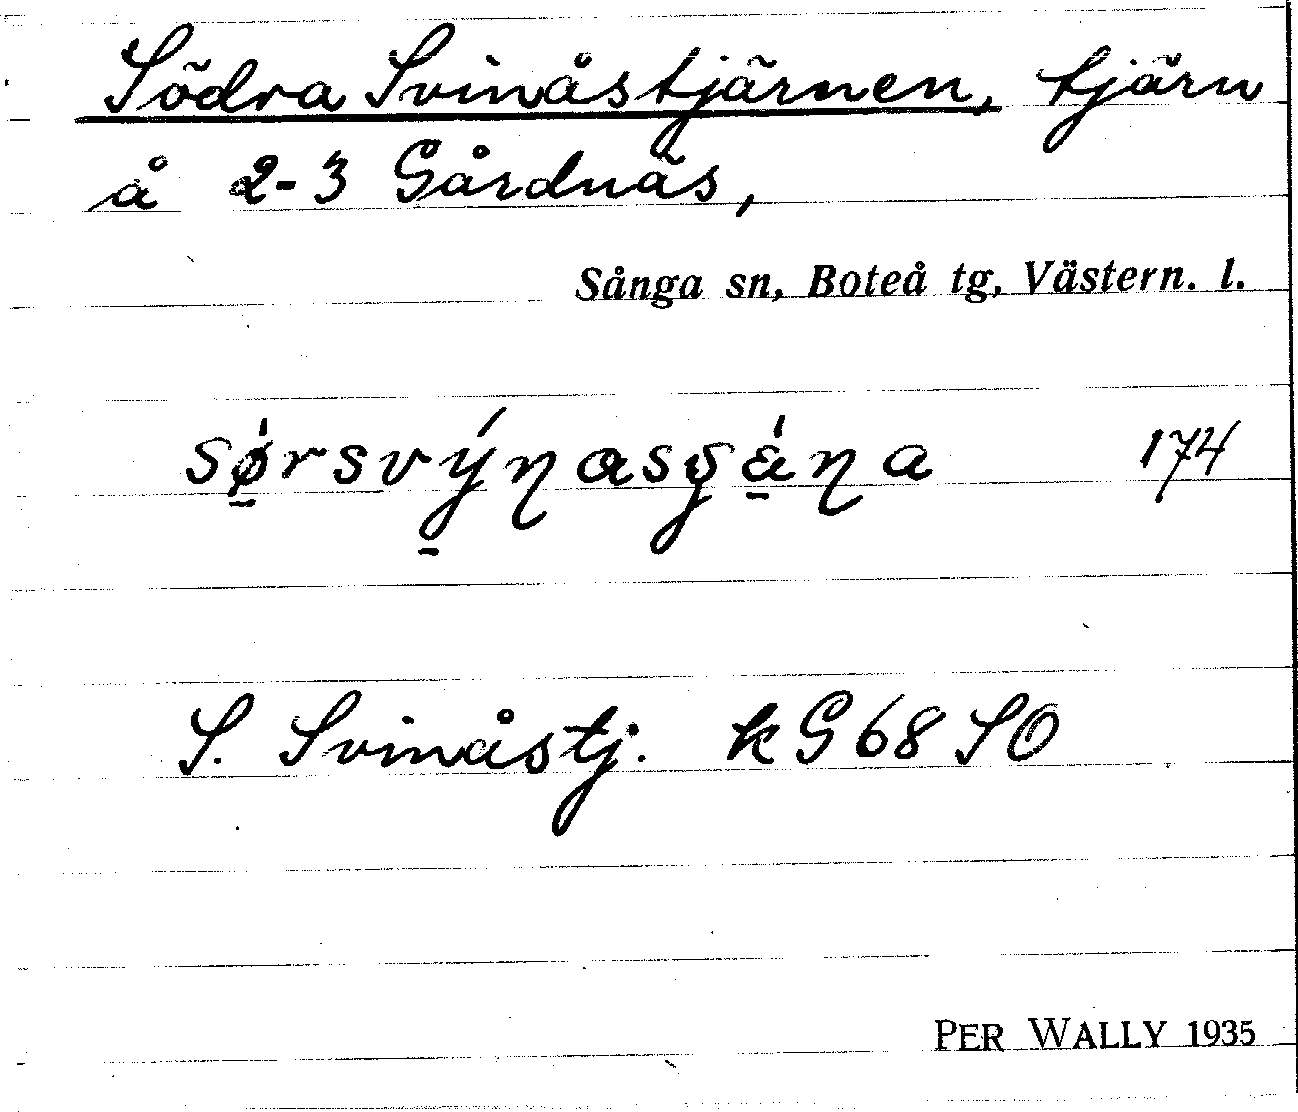 Södra Svinåstjärnen, tjärn
å 2-3 Gårdnäs,
Sånga sn, Boteå tg, Västern. l.
174
S. Svinåstj. kG68SO
PER WALLY 1935